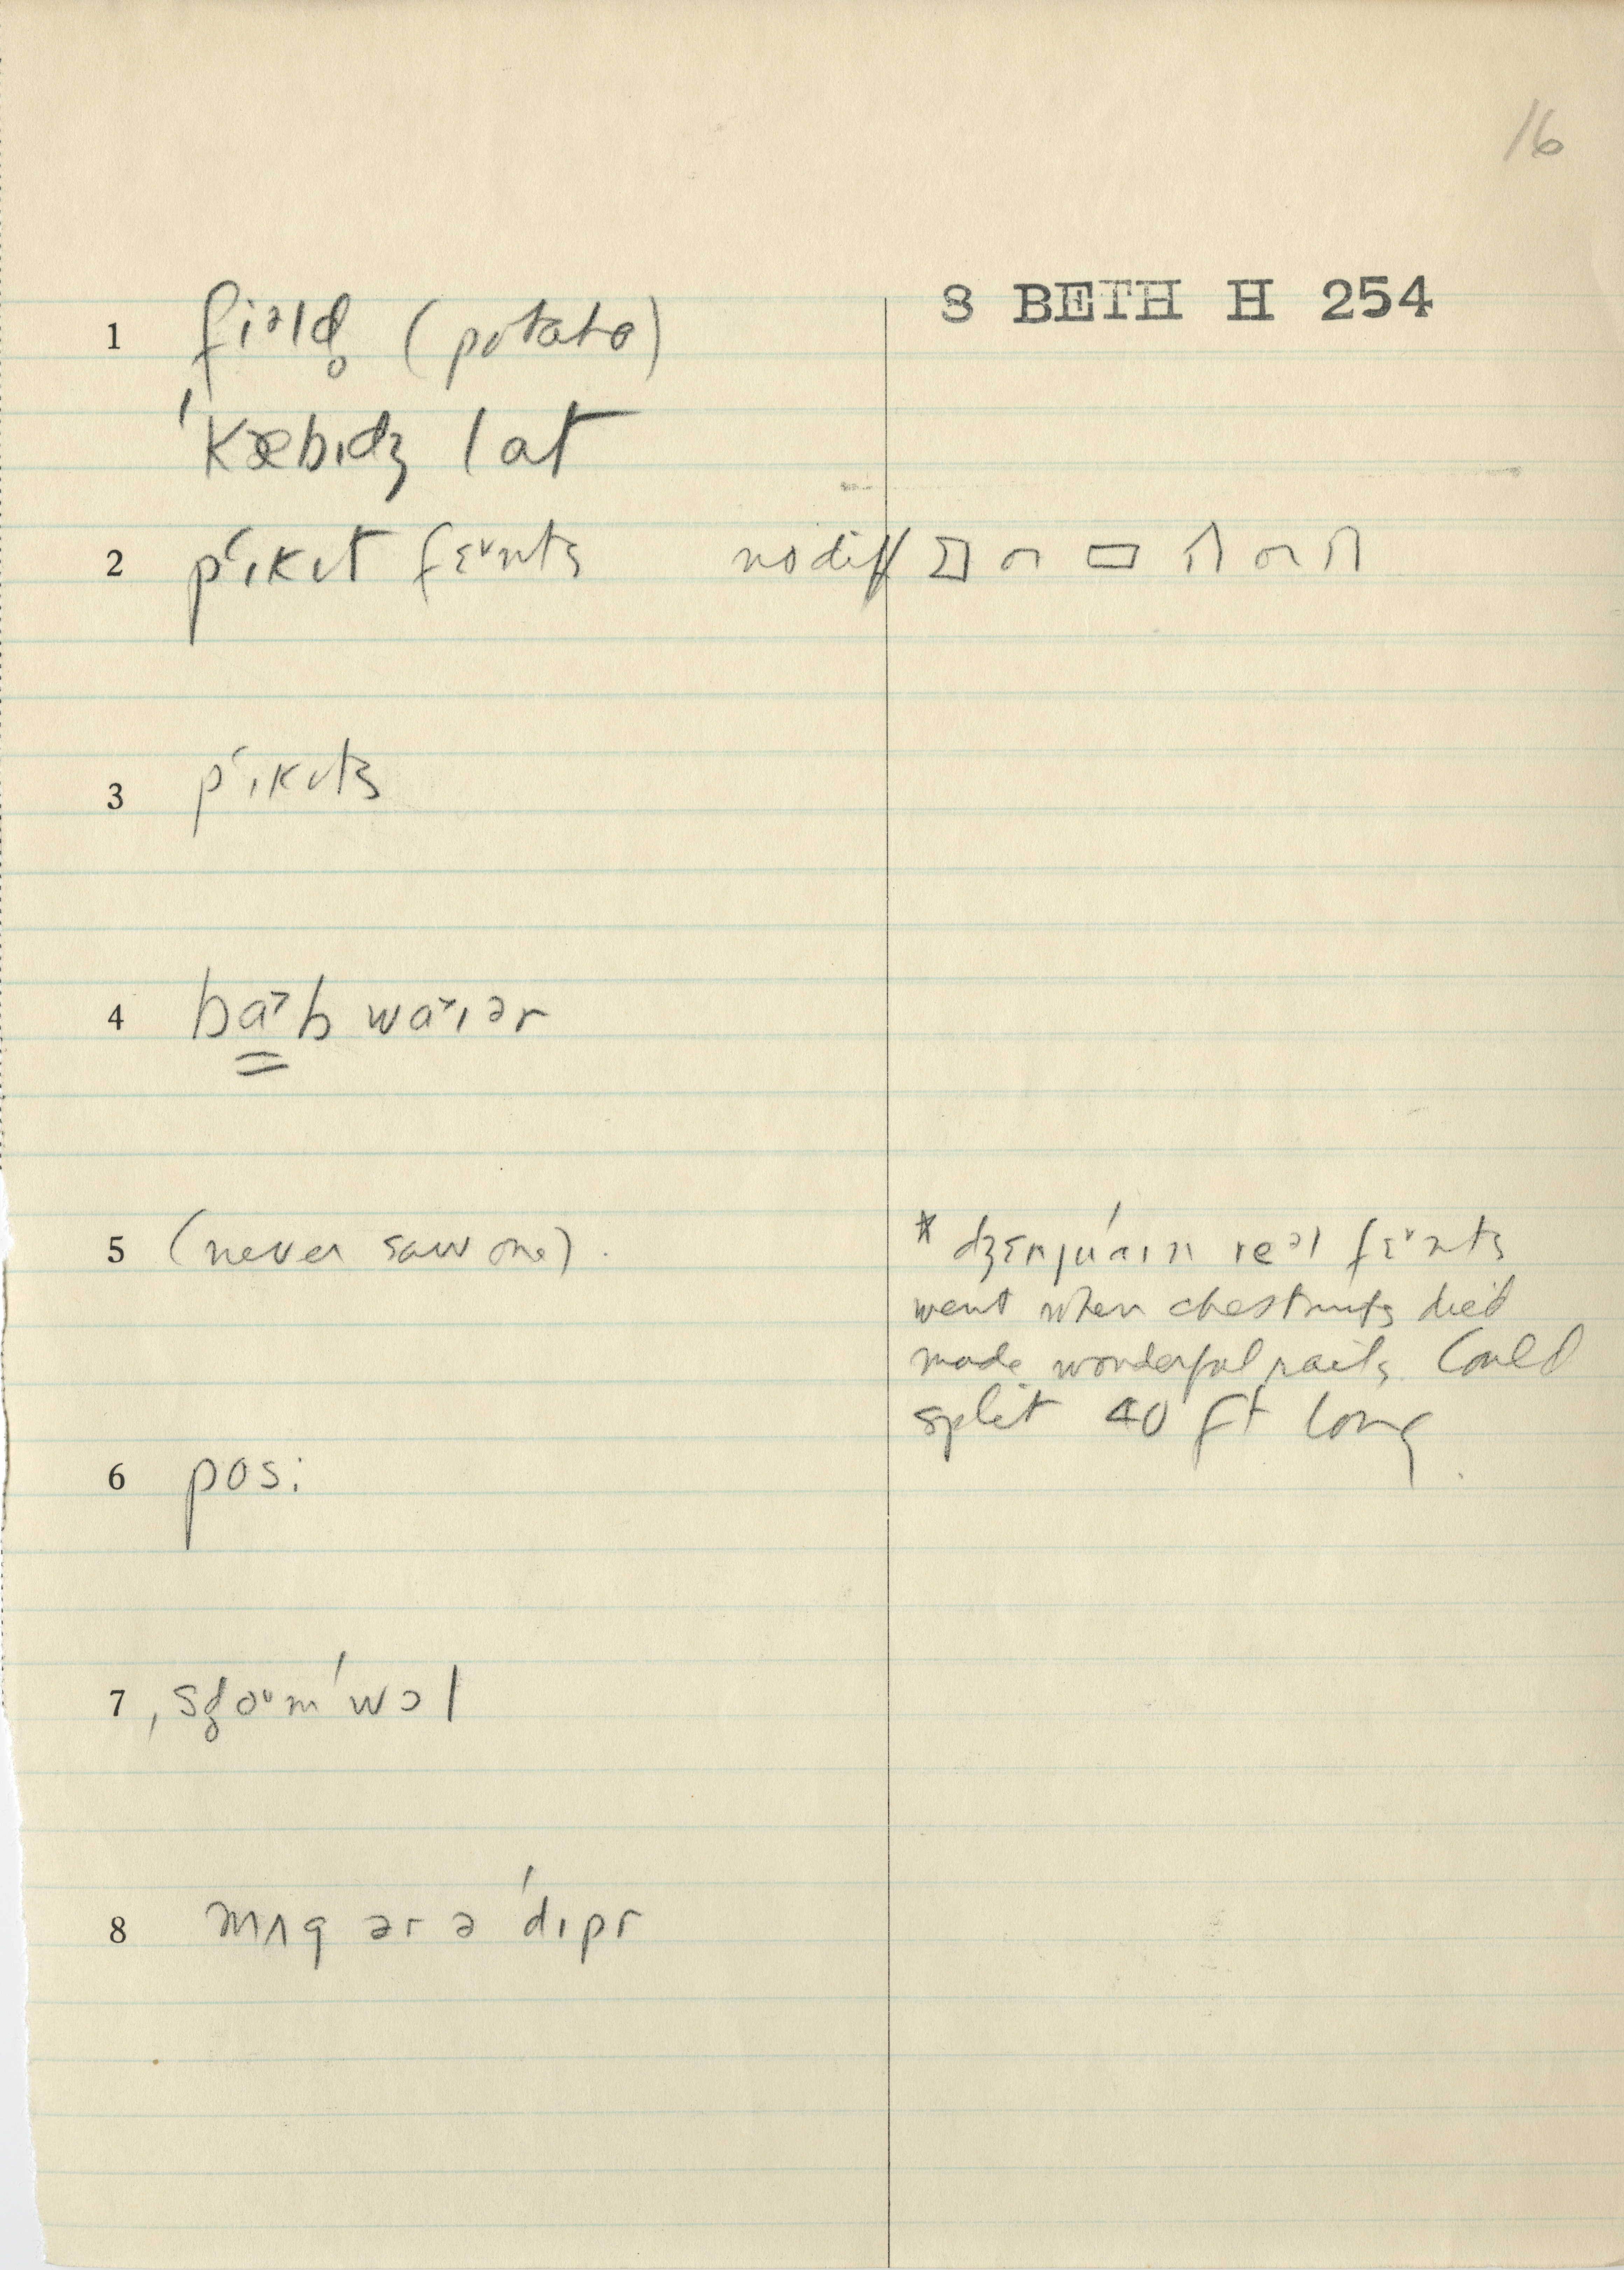 16
8 BETH H 254
1 fiᵊld̥ (potato)
ˈkæbɪdʒ lat
2 pʻɪkɪt fɛᵛnts no diff
3 pʻɪkɪts
4 baᵊb waᵛɪər
5 (never saw one).
* dʒɛnjuˈaɪn reᵊl fɛᵛnts
went when chestnuts died
made wonderful rails. Could
split 40 ft long.
6 posi
7 ˌsdoᵘnˈwɔl
8 mʌg ər ə ˈdɪpr